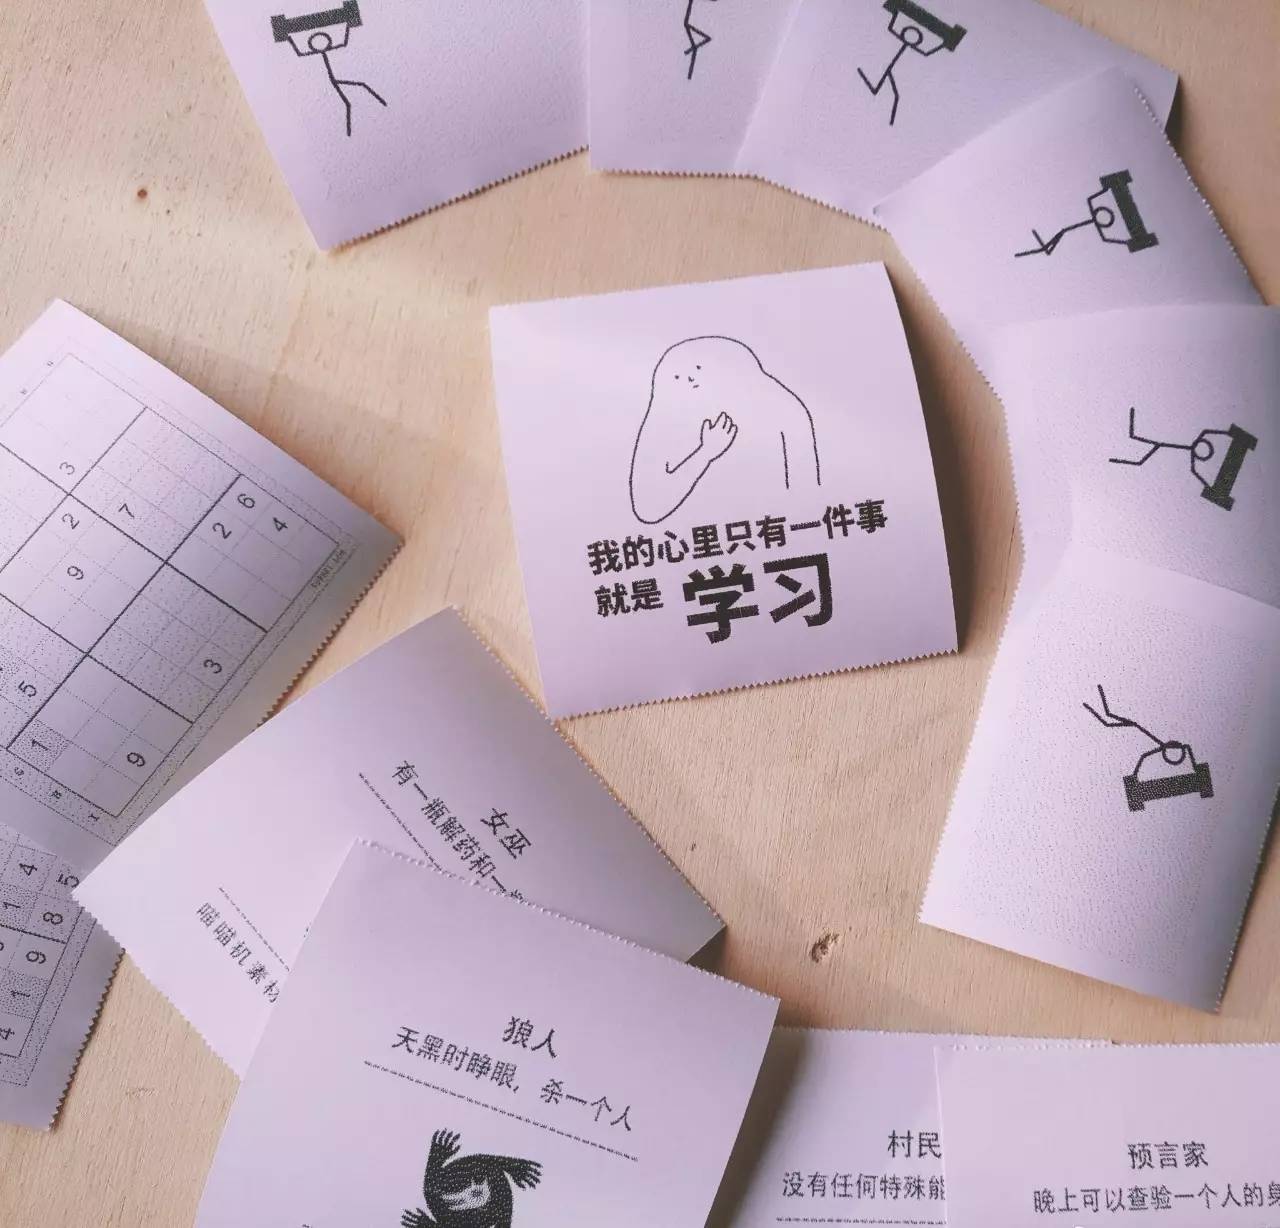 我的心里只有一件事
就是 学习
3
6
4
2
7
2
9
3
5
1
9
女巫
有一瓶解药和一
喵喵机素材
4
5
1
8
9
1
4
狼人
天黑时睁眼，杀一个人
村民
没有任何特殊能
预言家
晚上可以查验一个人的身